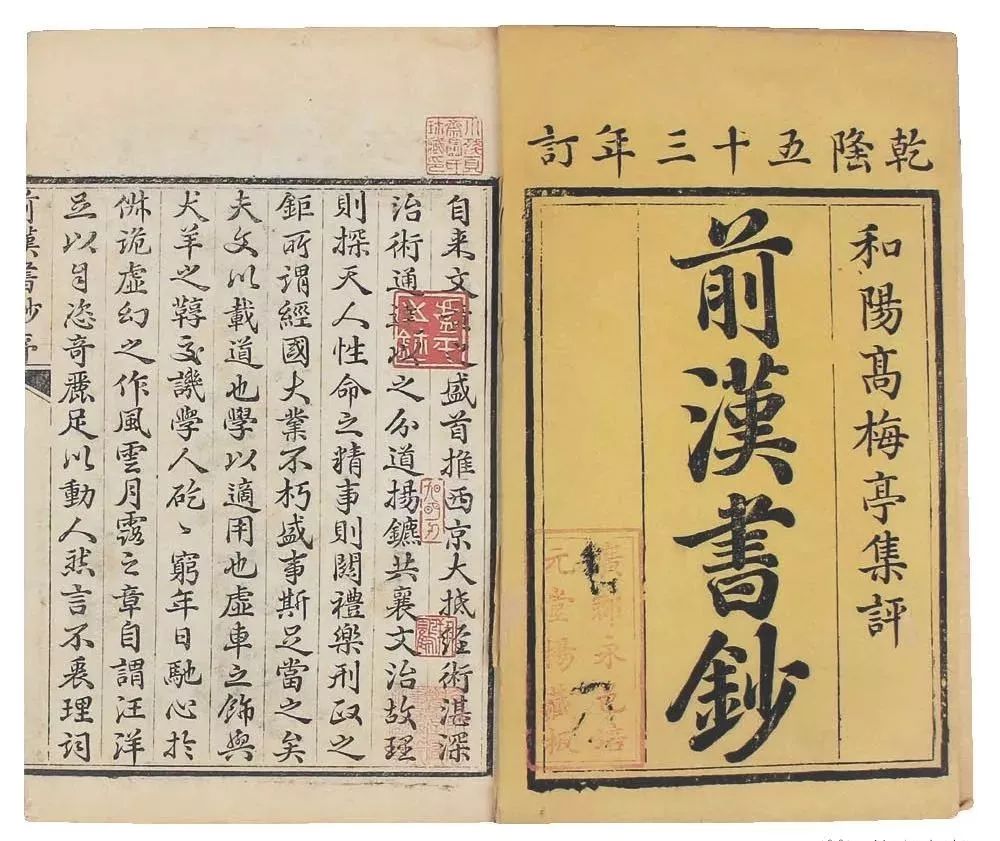 乾隆五十三年訂
和陽高梅亭集評
前漢書鈔
自来文之盛首推西京大抵經術湛深
治術通之分道揚鑣共襄文治故理
則探天人性命之精事則関禮樂刑政之
鉅所謂經國大業不朽盛事斯足當之矣
夫文以載道也學以適用也虛車之飾與
犬羊之鞟交譏學人矻〻窮年日馳心於
恢詭虛幻之作風雲月露之章自謂汪洋
足以自恣奇麗足以動人然言不衷理詞
前漢書鈔序